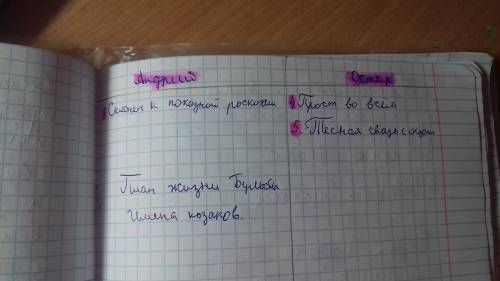 Андрий Остап
Склонен к показной роскоши 4. Прост во всём
5. Тесная связь с отцом
План жизни Бульбы
Имена козаков.